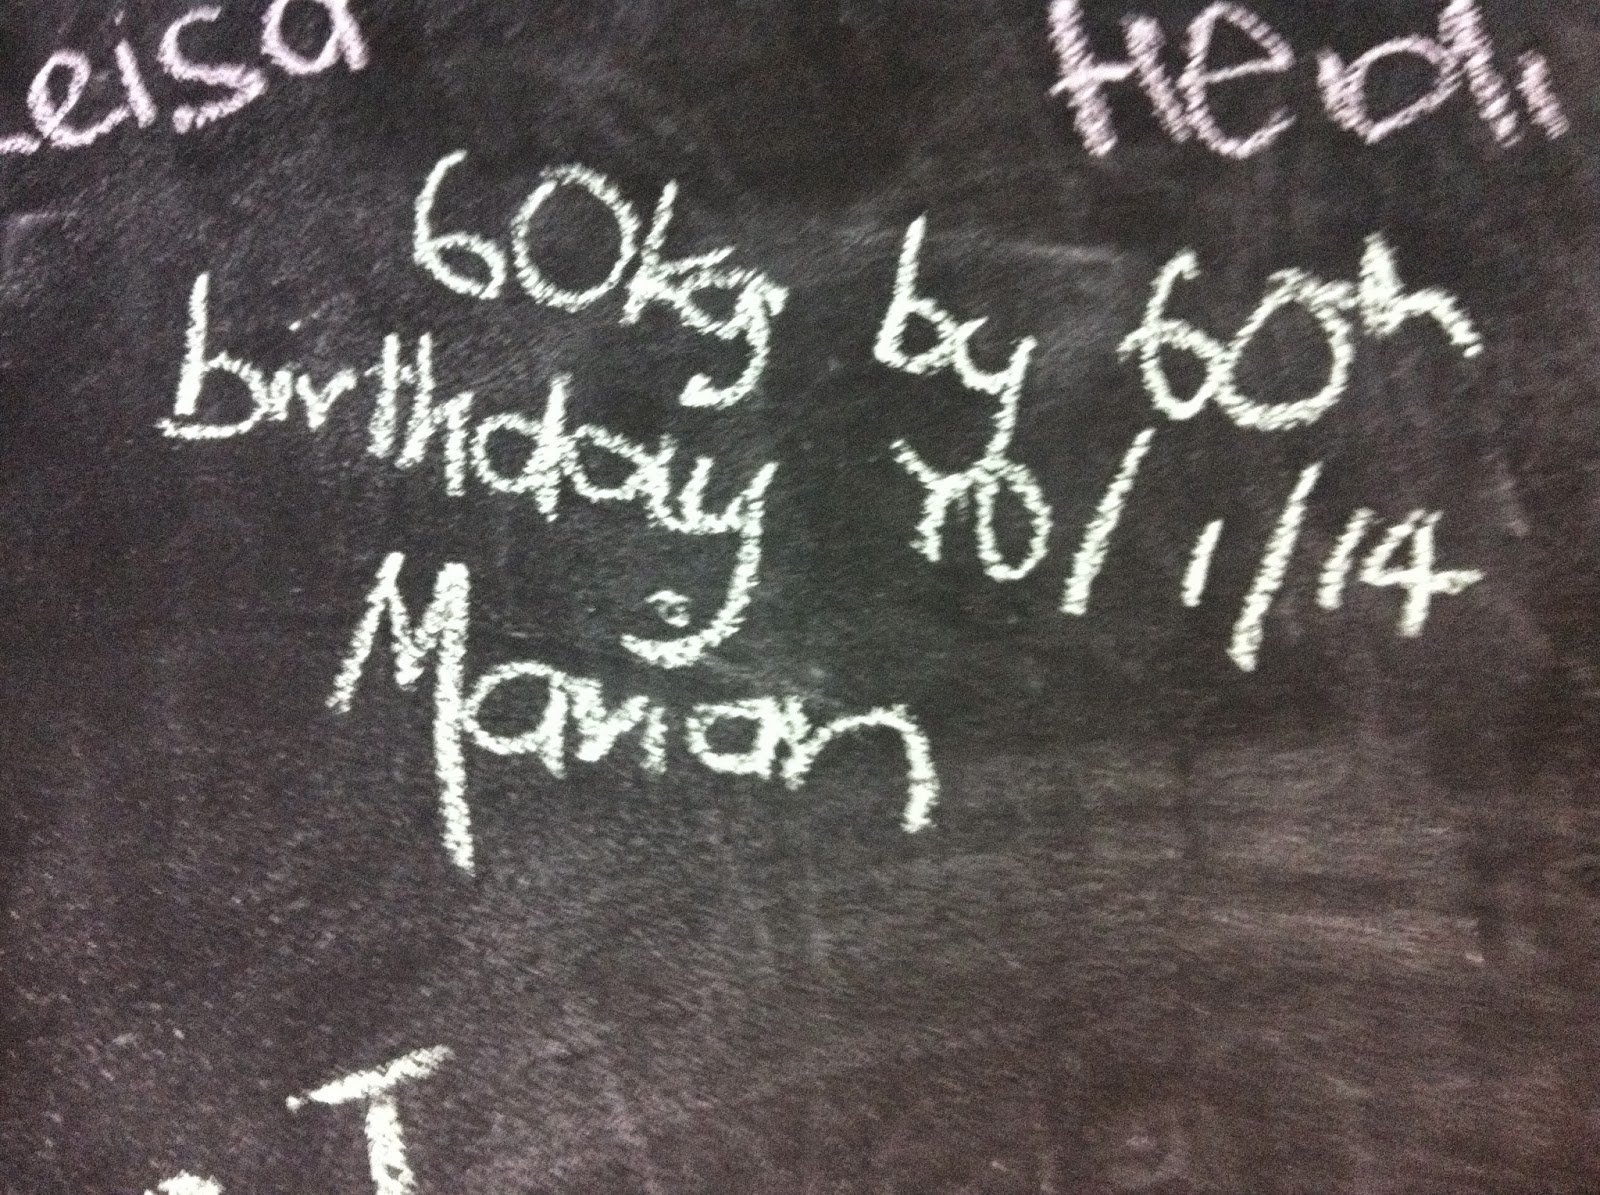 eisa Heidi
60kg by 60th
birthday 10/1/14
Marian
T